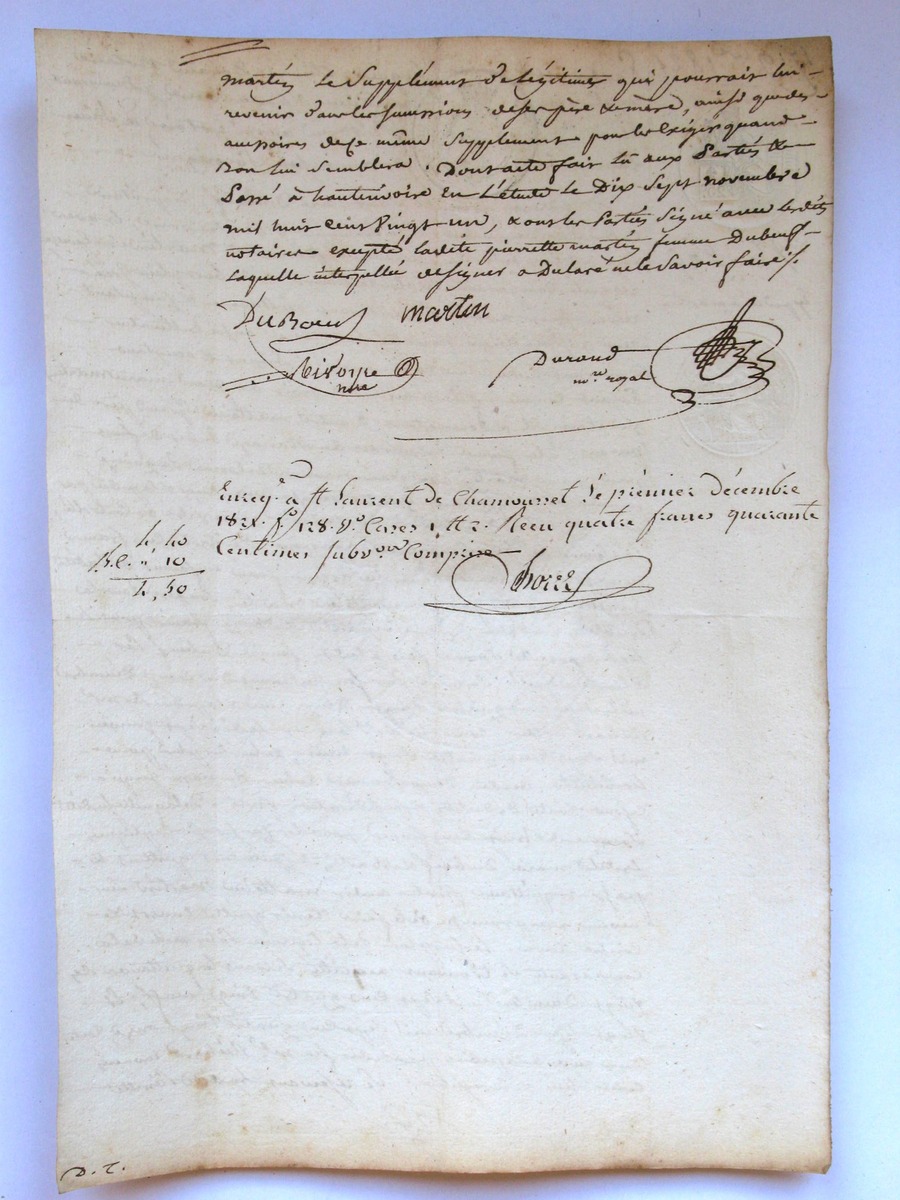 martin le Supplément de légitime qui pourrait lui
revenir dans les successions de ses père & mère, ainsi que des
accessoires de ce même Supplement pour les Exiger quand
Bon lui Semblera. Dont acte fait lû aux Parties &
Passé à hauterivoire En L'étude le Dix Sept novembre
mil huit cent Vingt un, & ont les Parties Signé avec lesdits
notaires excepté ladite pierrette martin femme Dubeuf
Laquelle interpellée de signer a Déclaré ne le Savoir faire ./.
DuBoeuf martin
Durand
nore
nore royal
Enregé. à St Laurent de Chamousset le premier décembre
1821. fo 128. Vo Cases 1 et 2. Recu quatre francs quarante
Centimes subvon Comprise
4,40
" 10
4,50
D. T.